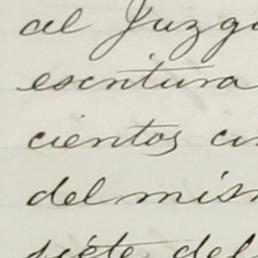 al Juzga
escritura
cientos ci
del mis
siete del